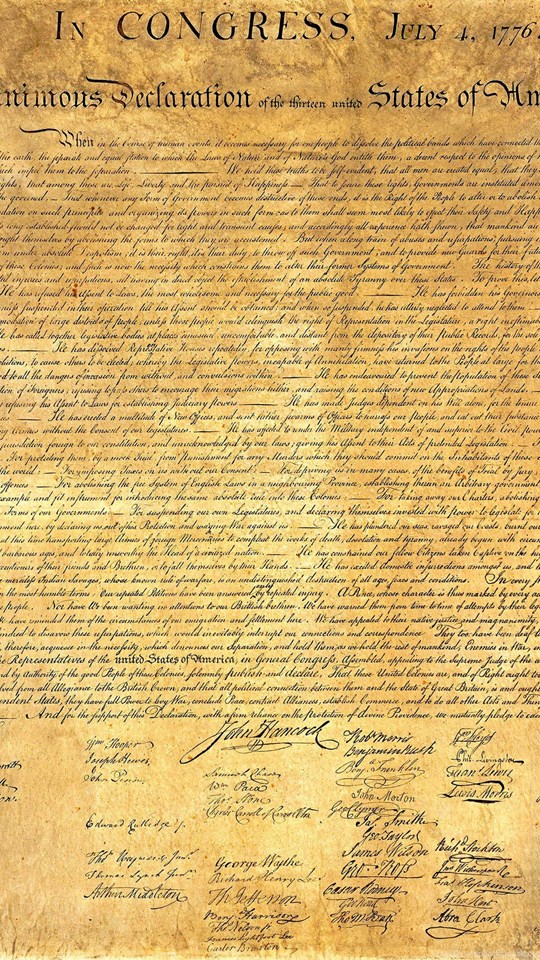 In CONGRESS, July 4, 1776.
nimous Declaration of the thirteen united States of Am
When in the Course of human events, it becomes necessary for one people to dissolve the political bands which have connected th
the earth, the separate and equal station to which the Laws of Nature and of Nature's God entitle them, a decent respect to the opinions of
which impel them to the separation. We hold these truths to be self-evident, that all men are created equal, that they
rights, that among these are Life, Liberty and the pursuit of Happiness. — That to secure these rights, Governments are instituted among
the governed, — That whenever any Form of Government becomes destructive of these ends, it is the Right of the People to alter or to abolish
dation on such principles and organizing its powers in such form, as to them shall seem most likely to effect their Safety and Happ
long established should not be changed for light and transient causes; and accordingly all experience hath shewn, that mankind are
right themselves by abolishing the forms to which they are accustomed. But when a long train of abuses and usurpations, pursuing
em under absolute Despotism, it is their right, it is their duty, to throw off such Government, and to provide new Guards for their fut
of these Colonies; and such is now the necessity which constrains them to alter their former Systems of Government. The history of th
ted injuries and usurpations, all having in direct object the establishment of an absolute Tyranny over these States. To prove this, let
He has refused his Assent to Laws, the most wholesome and necessary for the public good. He has forbidden his Governors
unless suspended in their operation till his Assent should be obtained; and when so suspended, he has utterly neglected to attend to them.
modation of large districts of people, unless those people would relinquish the right of Representation in the Legislature, a right inestimab
He has called together legislative bodies at places unusual, uncomfortable, and distant from the depository of their Public Records, for the sol
He has dissolved Representative Houses repeatedly, for opposing with manly firmness his invasions on the rights of the people.
solutions, to cause others to be elected; whereby the Legislative Powers, incapable of Annihilation, have returned to the People at large for
ed to all the dangers of invasion from without, and convulsions within. He has endeavoured to prevent the Population of these St
tion of Foreigners; refusing to pass others to encourage their migrations hither, and raising the conditions of new Appropriations of Lands.
y refusing his Assent to Laws for establishing Judiciary powers. He has made Judges dependent on his Will alone, for the tenure
He has erected a multitude of New Offices, and sent hither swarms of Officers to harrass our People, and eat out their substance
g Armies without the Consent of our legislatures. He has affected to render the Military independent of and superior to the Civil pow
jurisdiction foreign to our constitution, and unacknowledged by our laws; giving his Assent to their Acts of pretended Legislation:
For protecting them, by a mock Trial, from punishment for any Murders which they should commit on the Inhabitants of these
the world: For imposing Taxes on us without our Consent: For depriving us in many cases, of the benefits of Trial by jury
offences: For abolishing the free System of English Laws in a neighbouring Province, establishing therein an Arbitrary government
example and fit instrument for introducing the same absolute rule into these Colonies: For taking away our Charters, abolishing
Forms of our Governments: For suspending our own Legislatures, and declaring themselves invested with power to legislate for
ment here, by declaring us out of his Protection and waging War against us. He has plundered our seas, ravaged our Coasts, burnt our
at this time transporting large Armies of foreign Mercenaries to compleat the works of death, desolation and tyranny, already begun with circu
t barbarous ages, and totally unworthy the Head of a civilized nation. He has constrained our fellow Citizens taken Captive on the hi
executioners of their friends and Brethren, or to fall themselves by their Hands. He has excited domestic insurrections amongst us, and
merciless Indian Savages, whose known rule of warfare, is an undistinguished destruction of all ages, sexes and conditions. In every st
in the most humble terms: Our repeated Petitions have been answered only by repeated injury. A Prince, whose character is thus marked by every ac
people. Nor have We been wanting in attentions to our Brittish brethren. We have warned them from time to time of attempts by their leg
We have reminded them of the circumstances of our emigration and settlement here. We have appealed to their native justice and magnanimity,
kindred to disavow these usurpations, which would inevitably interrupt our connections and correspondence. They too have been deaf to
therefore, acquiesce in the necessity, which denounces our Separation, and hold them, as we hold the rest of mankind, Enemies in War,
Representatives of the united States of America, in General Congress, Assembled, appealing to the Supreme Judge of the
nd by Authority of the good People of these Colonies, solemnly publish and declare, That these United Colonies are, and of Right ought to
lved from all Allegiance to the British Crown, and that all political connection between them and the State of Great Britain, is and ought
pendent States, they have full Power to levy War, conclude Peace, contract Alliances, establish Commerce, and to do all other Acts and Thin
And for the support of this Declaration, with a firm reliance on the protection of divine Providence, we mutually pledge to each
John Hancock
Wm Hooper
Joseph Hewes,
John Penn
Edward Rutledge /.
Thos Heyward Junr.
Thomas Lynch Junr.
Arthur Middleton
Samuel Chase
Wm Paca
Thos Stone
Charles Carroll of Carrollton
George Wythe
Richard Henry Lee
Th Jefferson
Benj Harrison
Thos Nelson jr.
Francis Lightfoot Lee
Carter Braxton
Robt Morris
Benjamin Rush
Benj. Franklin
John Morton
Geo Clymer
Jas. Smith
Geo. Taylor
James Wilson
Geo. Ross
Caesar Rodney
Geo Read
Tho M:Kean
Wm Floyd
Phil. Livingston
Frans. Lewis
Lewis Morris
Richd. Stockton
Jno Witherspoon
Fras. Hopkinson
John Hart
Abra Clark